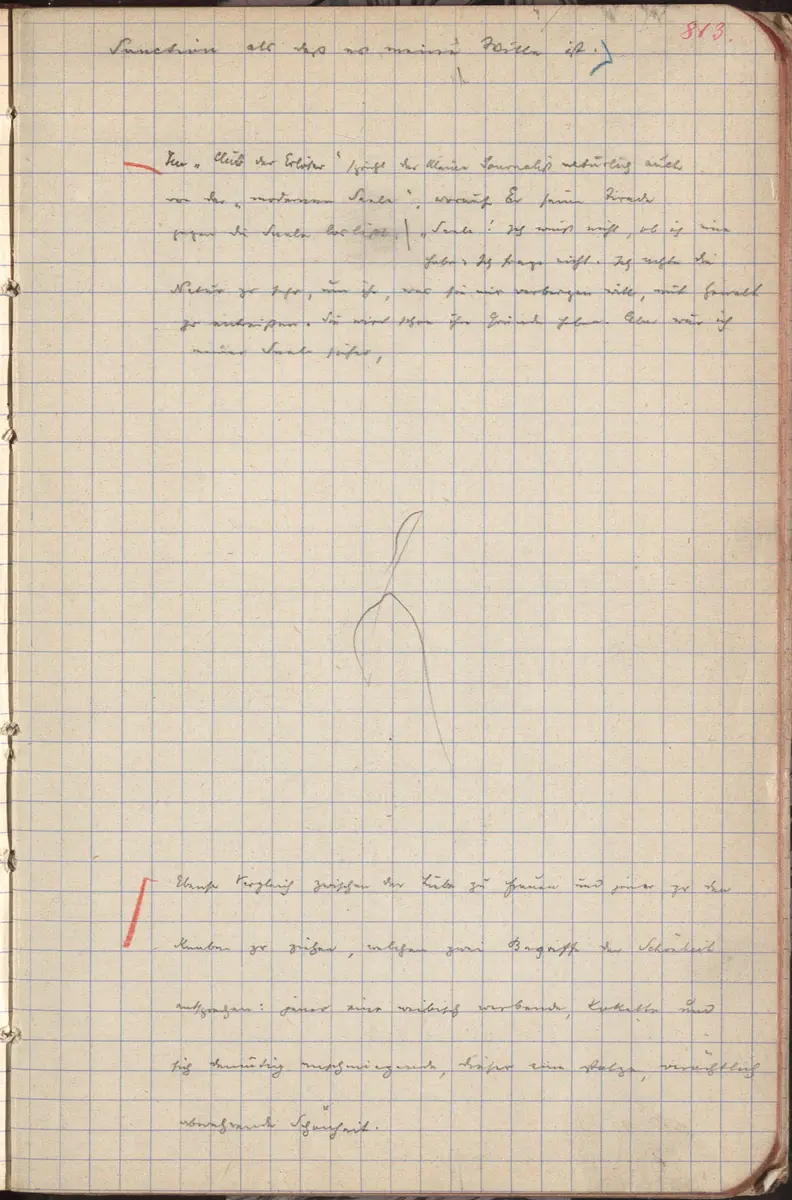 813.
Sanction als daß es meine Wille ist.)
Im „Club der Erlöser“ spricht der kleine Journalist natürlich auch
von der „modernen Seele“, worauf Er seine Tirade
gegen die Seele losläßt. | „Seele! Ich weiß nicht, ob ich eine
habe. Ich frage nicht. Ich achte die
Natur zu sehr, um ihr, was sie mir verbergen will, mit Gewalt
zu entreißen. Sie wird schon ihre Gründe haben. Aber wär ich
meiner Seele sicher,
Ebenso Vergleich zwischen der Liebe zu Frauen und jener zu den
Knaben zu ziehen, welchen zwei Begriffe der Schönheit
entsprechen: jener eine weibisch werbende, kokette und
sich demütig anschmiegende, dieser eine stolze, verächtlich
abwehrende Schönheit.